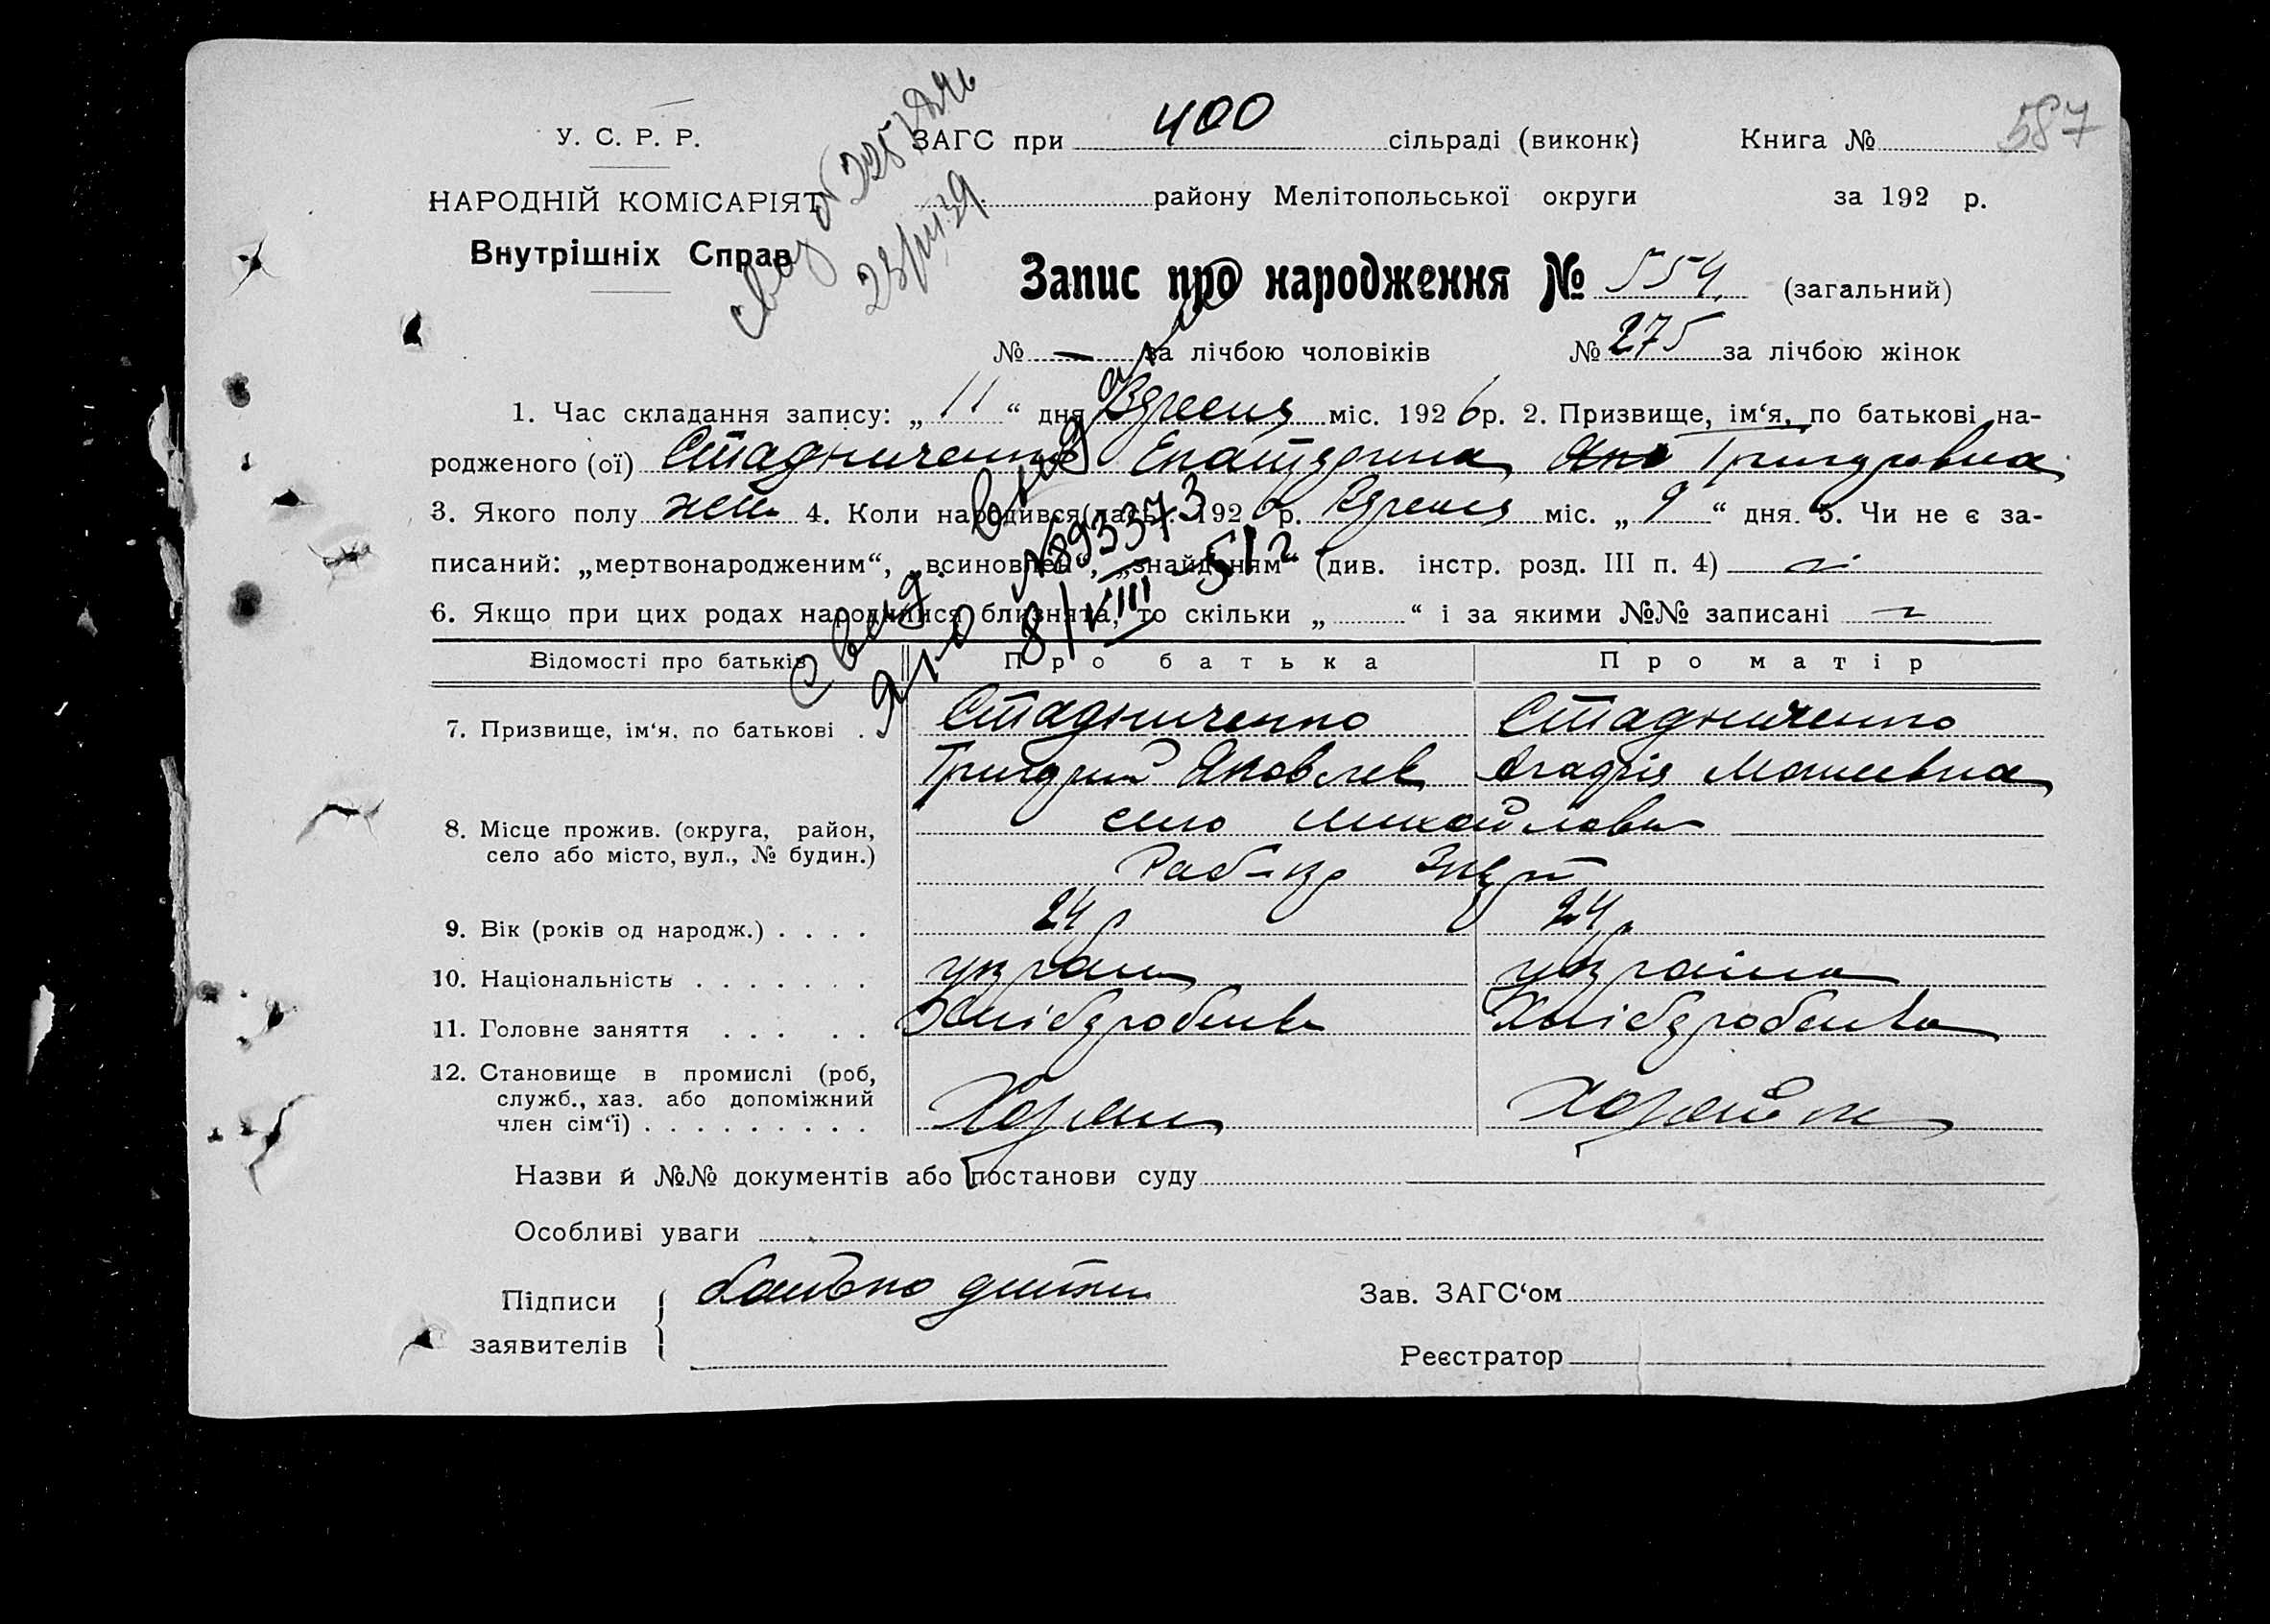 587
У. С. Р. Р.
ЗАГС при 400 сільраді (виконк) Книга №
НАРОДНІЙ КОМІСАРІЯТ
району Мелітопольської округи за 192 р.
Внутрішніх Справ
Запис про народження № 554 (загальний)
№ — за лічбою чоловіків № 275 за лічбою жінок
1. Час складання запису: „11“ дня Вересня міс. 1926 р. 2. Призвище, ім‘я, по батькові на-
родженого (ої) Стадниченко Екатерина Григоровна
3. Якого полу жен. 4. Коли народився(лась) 1926 р. Вересня міс. „9“ дня. 5. Чи не є за-
писаний: „мертвонародженим“, „всиновлен“, „знайденям“ (див. інстр. розд. III п. 4)
6. Якщо при цих родах народилися близнята, то скільки „ “ і за якими №№ записані
Свид.
8/VIII–51 г
Відомості про батьків Про батька Про матір
7. Призвище, ім‘я, по батькові . Стадниченко Стадниченко
Григорий Яковлев Агафія Моисеевна
8. Місце прожив. (округа, район, село Михайловка
село або місто, вул., № будин.)
9. Вік (років од народж.) . . . . 24 р 24 р
10. Національність . . . . . . . україн україна
11. Головне заняття . . . . . Хлібороб
12. Становище в промислі (роб,
служб., хаз. або допоміжний
член сім‘ї) . . . . . . . . .
Назви й №№ документів або постанови суду
Особливі уваги
Підписи батько дитини Зав. ЗАГС‘ом
заявителів Реєстратор